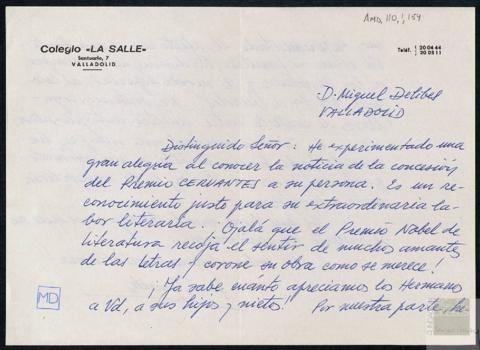 AMD, 110, 1, 154
Colegio «LA SALLE»
Santuario, 7
VALLADOLID
Teléf. 20 04 44
20 05 11
D. Miguel Delibes
VALLADOLID
Distinguido Señor: He experimentado una
gran alegría al conocer la noticia de la concesión
del Premio CERVANTES a su persona. Es un re-
conocimiento justo para su extraordinaria la-
bor literaria. ¡Ojalá que el Premio Nobel de
Literatura recoja el sentir de muchos amantes
de las letras y corone su obra como se merece!
¡Ya sabe cuánto apreciamos los Hermanos
a Vd, a sus hijos y nietos! Por nuestra parte
MD